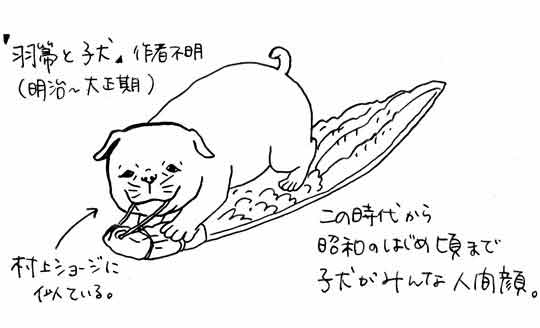 『羽箒と子犬』作者不明
（明治〜大正期）
村上ショージに
似ている。
この時代から
昭和のはじめ頃まで
子犬がみんな人間顔。